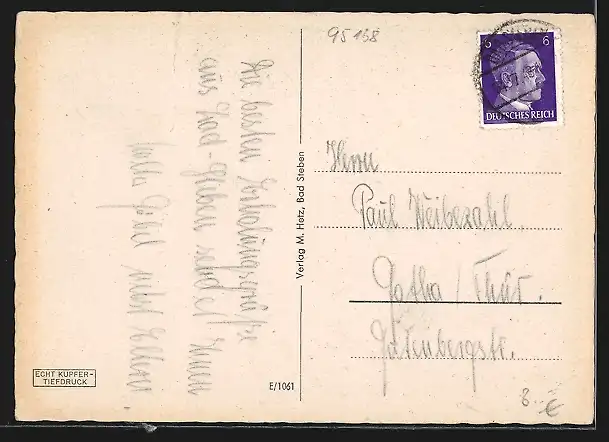 95138
6 6
DEUTSCHES REICH
Die besten Erholungsgrüße
aus Bad-Steben sendet Ihnen
nebst Eltern
Verlag M. Hetz, Bad Steben
Herrn
Paul Weibezahl,
Gotha / Thür.
Gutenbergstr.
ECHT KUPFER-
TIEFDRUCK
E/1061
8.- €